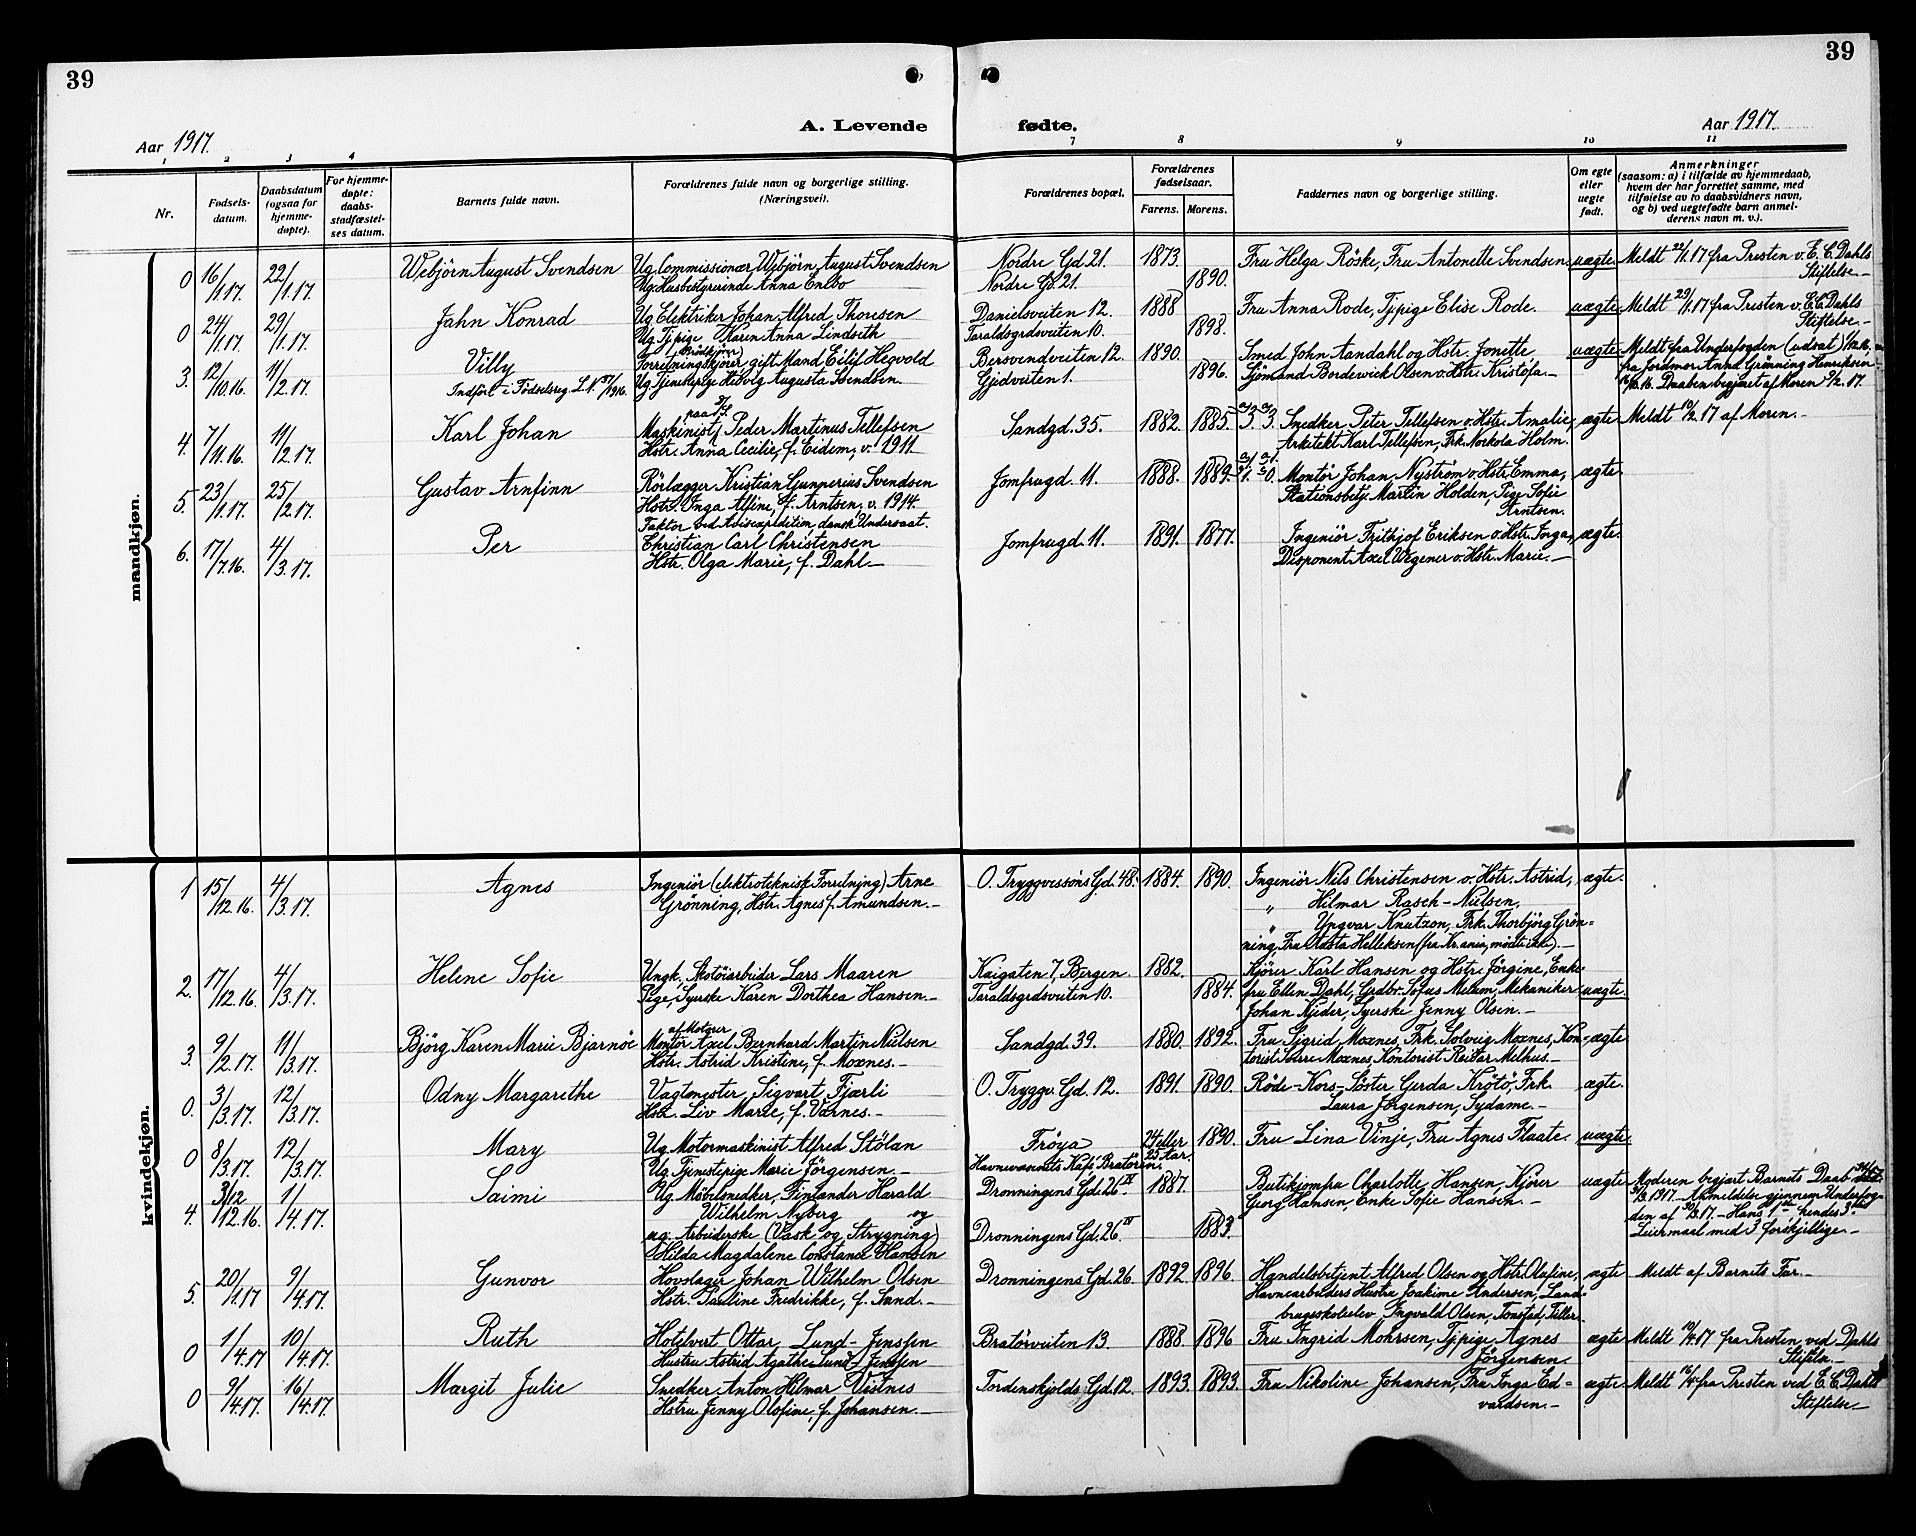 39
39
A. Levende fødte.
Aar 1917.
Aar 1917.
1 2 3 4 7 8 9 10 11
Nr.
Fødsels-
datum.
Daabsdatum
(ogsaa for
hjemme-
døpte).
For hjemme-
døpte:
daabs-
stadfæstel-
ses datum.
Barnets fulde navn.
Forældrenes fulde navn og borgerlige stilling.
(Næringsvei).
Forældrenes bopæl.
Forældrenes
fødselsaar.
Farens. Morens.
Faddernes navn og borgerlige stilling.
Om egte
eller
uegte
født.
Anmerkninger
(saasom: a) i tilfælde av hjemmedaab,
hvem der har forrettet samme, med
tilføielse av to daabsvidners navn,
og b) ved uegtefødte barn anmel-
derens navn m. v.).
mandkjøn.
0 16/1.17. 22/1.17. Webjörn August Svendsen
Ug. Commissionær Webjörn August Svendsen
Ug. Husbestyrerinde Anna Enlbo
Nordre Gd 21. 1873.
Nordre Gd. 21. 1890.
Fru Helga Röske, Fru Antonette Svendsen. uægte. Meldt 22/1.17 fra Presten v. E. C. Dahls
Stiftelse.—
0 24/1.17. 29/1.17. Jahn Konrad
Ug Elektriker Johan Alfred Thoresen
Ug Tjpige Karen Anna Lindseth
Danielsveiten 12. 1888
Taraldsgrdsveiten 10. 1898.
Fru Anna Rode, Tjpige Elise Rode. uægte. Meldt 29/1.17 fra Presten v. E. C. Dahls
Stiftelse.—
3. 12/10.16. 11/2.17. Villy
Indfört i Födselsreg. L. N. 37/1916.
(Brödkjörer)
Forretningskjører gift Mand Eilif Hegvold
Ug Tjenstepige Hedvig Augusta Svendsen.
Bersvendveiten 12. 1890.
Gjedveiten 1. 1896.
Smed John Aandahl og Hstr. Jonette,
Sjömand Bordewick Olsen o. Hstr. Kristofa.—
uægte. Meldt fra Underfogden (udsat)
fra Jordmor Anna Grönning Henriksen
Daaben begjæret af Moren 9/2.17.
4. 7/11.16. 11/2.17. Karl Johan
Maskinist paa D/S Peder Martinus Tellefsen
Hstr. Anna Cecilie, f. Eidem, v. 1911.
Sandgd. 35. 1882. 1885.
Snedker Peter Tellefsen o. Hstr. Amalie,
Arkitekt Karl Tellefsen, Frk. Norkola Holm.
ægte. Meldt 10/2.17 af Moren.—
5. 23/1.17. 25/2.17. Gustav Arnfinn
Rörlægger Kristian Gunnerius Svendsen
Hstr. Inga Alfine, f. Arntsen, v. 1914.
Jomfrugd. 11. 1888. 1889.
Montör Johan Nyström o. Hstr. Emma,
Stationsbetj. Martin Holden, Pige Sofie
Arntsen.
ægte.
6. 17/7.16. 4/3.17. Per
Faktor ved Avisexpedition dansk Undersaat.
Christian Carl Christensen
Hstr. Olga Marie, f. Dahl.—
Jomfrugd. 11. 1891. 1877.
Ingeniör Frithjof Eriksen o. Hstr. Inga,
Disponent Axel Wegener o. Hstr. Marie.—
ægte.
kvindekjøn.
1 15/12.16. 4/3.17. Agnes
Ingeniör (elektroteknisk Forretning) Arne
Grönning, Hstr. Agnes f. Amundsen.—
O. Tryggvessöns Gd. 48. 1884. 1890.
Ingeniör Nils Christensen o. Hstr. Astrid,
" Hilmar Rasch-Nielsen,
" Yngvar Knutzon, Frk. Thorbjörg Grön=
ning, Fru Aasta Helleksen (fra Kr.ania, mödte ikke).—
ægte.
2. 17/12.16. 4/3.17. Helene Sofie
Ungk. Skotöiarbeider Lars Maaren
Pige, Syerske Karen Dorthea Hansen.—
Kaigaten 7, Bergen. 1882.
Taraldsgrdsveiten 10. 1884.
Kjörer Karl Hansen og Hstr. Jörgine, Enke-
fru Ellen Dahl, Gadbr. Sofus Melum, Mekaniker
Johan Kjeder, Syerske Jenny Olsen.—
uægte.
3. 9/2.17. 11/3.17. Björg Karen Marie Bjarnöe
af Motorer
Montör Axel Bernhard Martin Nielsen
Hstr. Astrid Kristine, f. Moxnes.—
Sandgd. 39. 1880. 1892.
Fru Sigrid Moxnes, Frk. Solveig Moxnes, Kon-
torist Sverre Moxnes, Kontorist Reidar Melhus.—
ægte.
0. 3/3.17. 12/3.17. Odny Margarethe
Vagtmester Sigvart Fjærli
Hstr. Liv Marie, f. Værnes.—
O. Tryggv. Gd. 12. 1891. 1890.
Röde-Kors-Söster Gerda Krötö, Frk
Laura Jörgensen, Sydame.—
ægte.
0 8/3.17. 12/3.17. Mary
Ug. Motormaskinist Alfred Stölan
Ug. Tjenstepige Marie Jörgensen.—
Fröya 24 eller 25 Aar. 1890.
Havnevæsnets Kafé, Bratören.
Fru Lina Vinje, Fru Agnes Flaate.
uægte.
4. 3/12.16. 1/4.17. Saimi
Ug Möbelsnedker, Finlænder Harald
Wilhelm Nyberg og
ug. Arbeiderske (Vask og Strygning)
Hilda Magdalene Constance Hansen
Dronningens Gd. 26 IV 1887.
Dronningens Gd. 26. IV 1883.
Butikjomfru Charlotte Hansen, Kjörer
Georg Hansen, Enke Sofie Hansen.—
uægte Moderen begjært Barnets Daab
1917.— Anmeldelse gjennem Underfog-
den af 30/3.17.— Hans 1ste hendes 3die
Leiermaal med 3 forskjellige.—
5. 20/1.17 9/4.17. Gunvor
Hovslager Johan Wilhelm Olsen
Hstr. Pauline Fredrikke, f. Sund.—
Dronningens Gd. 26 1892 1896.
Handelsbetjent Alfred Olsen og Hstr. Olafine,
Havnearbeiders Hustru Joakime Andersen, Land-
brugsskoleelev Ingvald Olsen, Tonstad, Tiller.
ægte Meldt af Barnets Far.—
0 1/4.17 10/4.17. Ruth
Hotelvert Ottar Lund-Jenssen
Hustru Astrid Agathe Lund-Jenssen
Bratörveiten 13. 1888 1896
Fru Ingrid Mohrsen, Tjpige Agnes
Jörgensen.
ægte Meldt 10/4.17 fra Presten ved Dahls
Stiftelse.—
0 9/4.17. 16/4.17. Margit Julie
Snedker Anton Hilmar Vistnes
Hstru Jenny Olafine, f. Johansen.—
Tordenskjolds Gd. 12. 1893. 1893.
Fru Nikoline Johansen, Fru Inga Ed=
vardsen.—
ægte Meldt 16/4 fra Presten ved E. C. Dahls
Stiftelse.—